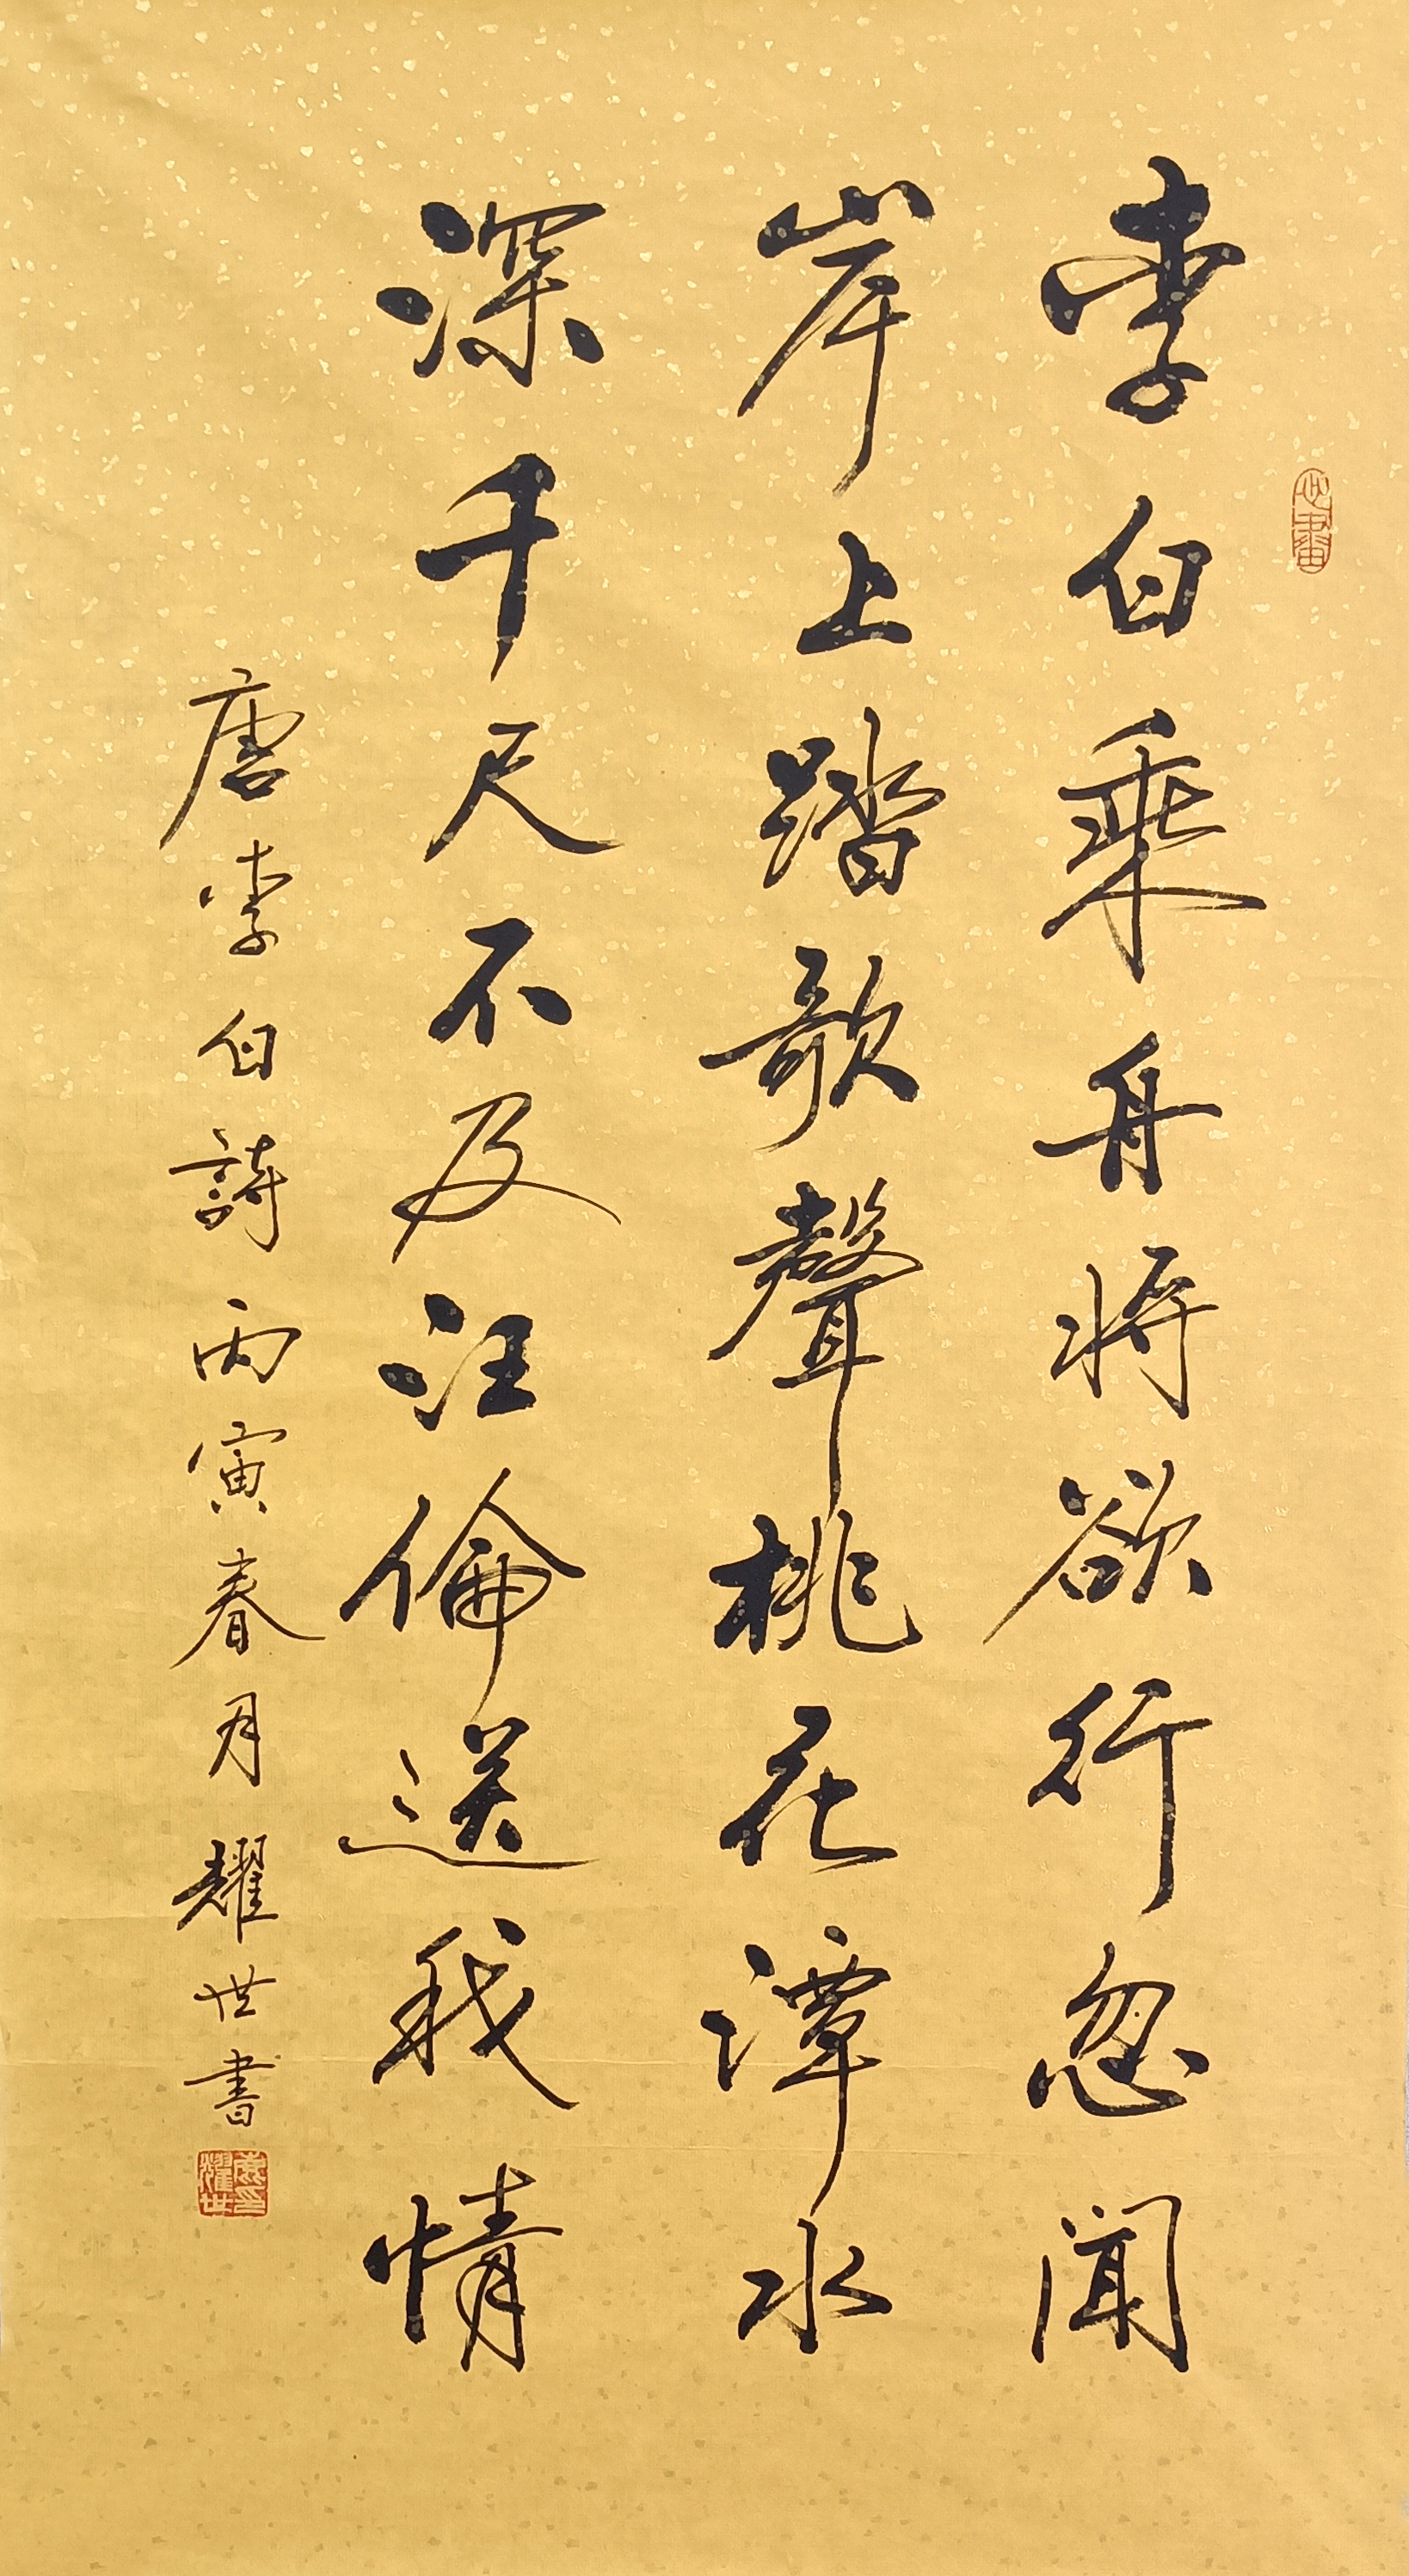 李白乘舟将欲行忽闻
岸上踏歌聲桃花潭水
深千尺不及汪倫送我情
唐李白詩 丙寅春月耀世書
耀世